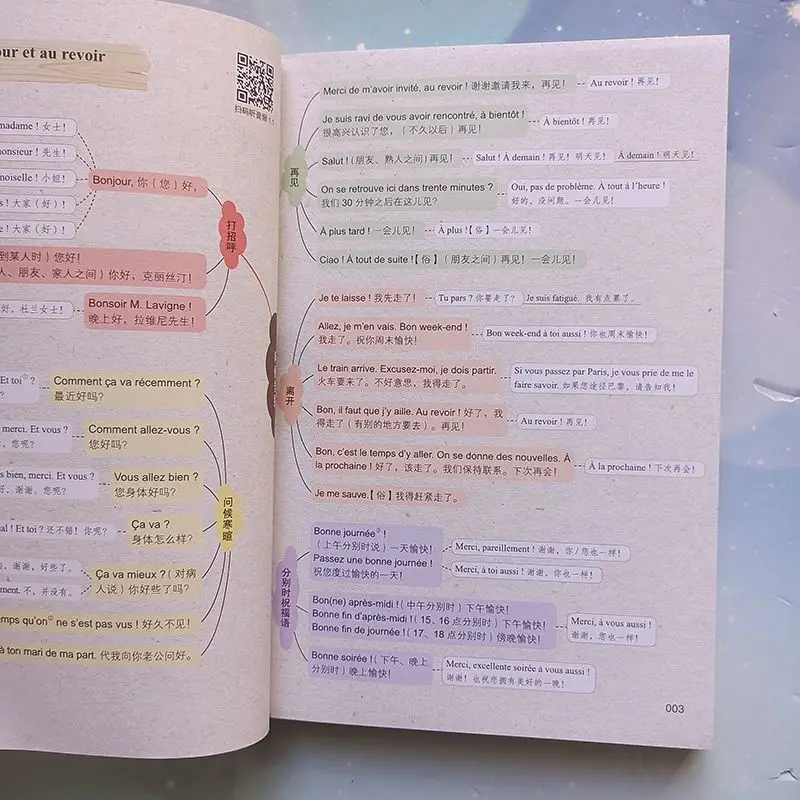 our et au revoir
扫码听音频 1.1
madame ! 女士!
monsieur ! 先生!
moiselle ! 小姐!
s ! 大家(好)!
! 大家(好)!
Bonjour, 你(您)好,
打招呼
到某人时)您好!
人、朋友、家人之间)你好,克丽丝汀!
好,杜兰女士!
Bonsoir M. Lavigne !
晚上好,拉维尼先生!
Et toi① ?
Comment ça va récemment ?
最近好吗?
merci. Et vous ?
,您呢?
Comment allez-vous ?
您好吗?
s bien, merci. Et vous ?
好,谢谢。您呢?
Vous allez bien ?
您身体好吗?
nal ! Et toi ? 还不错!你呢?
Ça va ?
身体怎么样?
,谢谢,好些了。
ment. 不,并没有。
Ça va mieux ?(对病
人说)你好些了吗?
emps qu'on② ne s'est pas vus ! 好久不见!
à ton mari de ma part. 代我向你老公问好。
问候寒暄
再见
Merci de m'avoir invité, au revoir ! 谢谢邀请我来,再见!
Au revoir ! 再见!
Je suis ravi de vous avoir rencontré, à bientôt !
很高兴认识了您,(不久以后)再见!
À bientôt ! 再见!
Salut !(朋友、熟人之间)再见!
Salut ! À demain ! 再见!明天见!
À demain ! 明天见!
On se retrouve ici dans trente minutes ?
我们 30 分钟之后在这儿见?
Oui, pas de problème. À tout à l'heure !
好的,没问题。一会儿见!
À plus tard ! 一会儿见!
À plus !【俗】一会儿见!
Ciao ! À tout de suite !【俗】(朋友之间)再见!一会儿见!
离开
Je te laisse ! 我先走了!
Tu pars ? 你要走了?
Je suis fatigué. 我有点累了。
Allez, je m'en vais. Bon week-end !
我走了。祝你周末愉快!
Bon week-end à toi aussi ! 你也周末愉快!
Le train arrive. Excusez-moi, je dois partir.
火车要来了。不好意思,我得走了。
Si vous passez par Paris, je vous prie de me le
faire savoir. 如果您途径巴黎,请告知我!
Bon, il faut que j'y aille. Au revoir ! 好了,我
得走了(有别的地方要去)。再见!
Au revoir ! 再见!
Bon, c'est le temps d'y aller. On se donne des nouvelles. À
la prochaine ! 好了,该走了。我们保持联系。下次再会!
À la prochaine ! 下次再会!
Je me sauve.【俗】我得赶紧走了。
分别时祝福语
Bonne journée③ !
(上午分别时说)一天愉快!
Passez une bonne journée !
祝您度过愉快的一天!
Merci, pareillement ! 谢谢,你/您也一样!
Merci, à toi aussi ! 谢谢,你也一样!
Bon(ne) après-midi !(中午分别时)下午愉快!
Bonne fin d'après-midi !(15、16 点分别时)下午愉快!
Bonne fin de journée !(17、18 点分别时)傍晚愉快!
Merci, à vous aussi !
谢谢,您也一样!
Bonne soirée !(下午、晚上
分别时)晚上愉快!
Merci, excellente soirée à vous aussi !
谢谢!也祝您拥有美好的一晚!
003